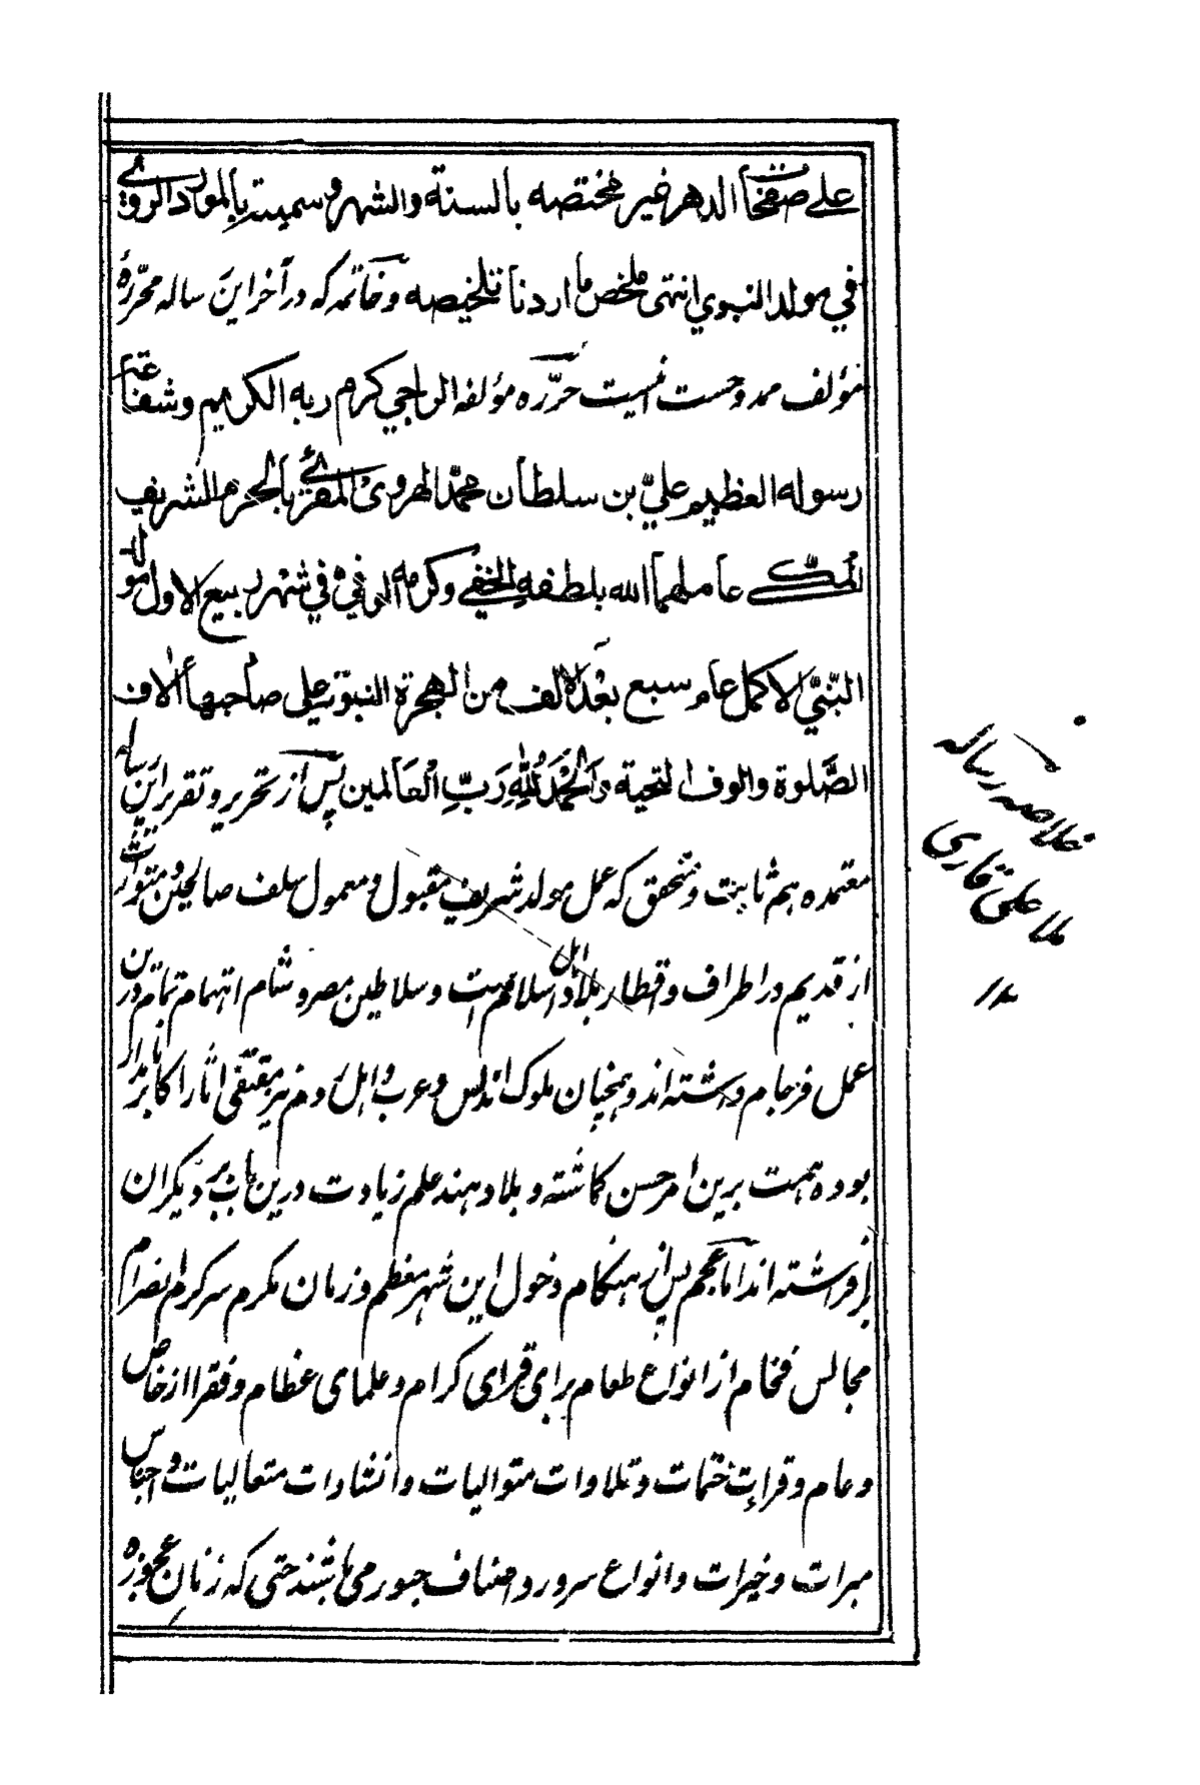 على صفحات الدهر غير مختصه بالسنة والشهر وسميته بالمورد الروي
في مولد النبوي انتهى ملخص ما اردنا تلخيصه وخاتمه كه در آخر اين رساله محرّره
مؤلف ممدوحست نيست حرّره مؤلفه الراجي كرم ربه الكريم وشفاعة
رسوله العظيم عليّ بن سلطان محمّد الهروى المقرئ بالحرم الشريف
المكي عاملهما الله بلطفه الخفي وكرمه الوفي في شهر ربيع الاول مولد
النّبيّ الاكمل عام سبع بعد الالف من الهجرة النبوّية على صاحبها ألاف
الصَّلوة والوف التحية وَالْحَمْدُ لِلّٰهِ رَبِّ الْعَالمين پس از تحرير وتقرير اين رساله
معتمده هم ثابت ومتحقق كه عمل مولد شريف مقبول ومعمول سلف صالحين ومتوارث
از قديم در اطراف واقطار بلاد اهل اسلام هست وسلاطين مصر وشام اهتمام تمام درين
عمل فرجام داشته اند وهمچنان ملوك اندلس وعرب واهل ونيز مقتفى اثار اكابر نامدار
بوده همت برين امر حسن كماشته وبلاد هند علم زيادت درين باب بر ديكران
افراشته اند اما عجم پس از هنكام دخول اين شهر معظم وزمان مكرم سركرم انصرام
مجالس فخام از انواع طعام براى قراى كرام وعلماى عظام وفقرا از خاص
وعام وقراءت ختمات وتلاوات متواليات وانشادات متعاليات واجناس
مبرات وخيرات وانواع سرور واصناف حبور مى باشند حتى كه زنان عجوزه
خلاصه رساله
ملا على قارى